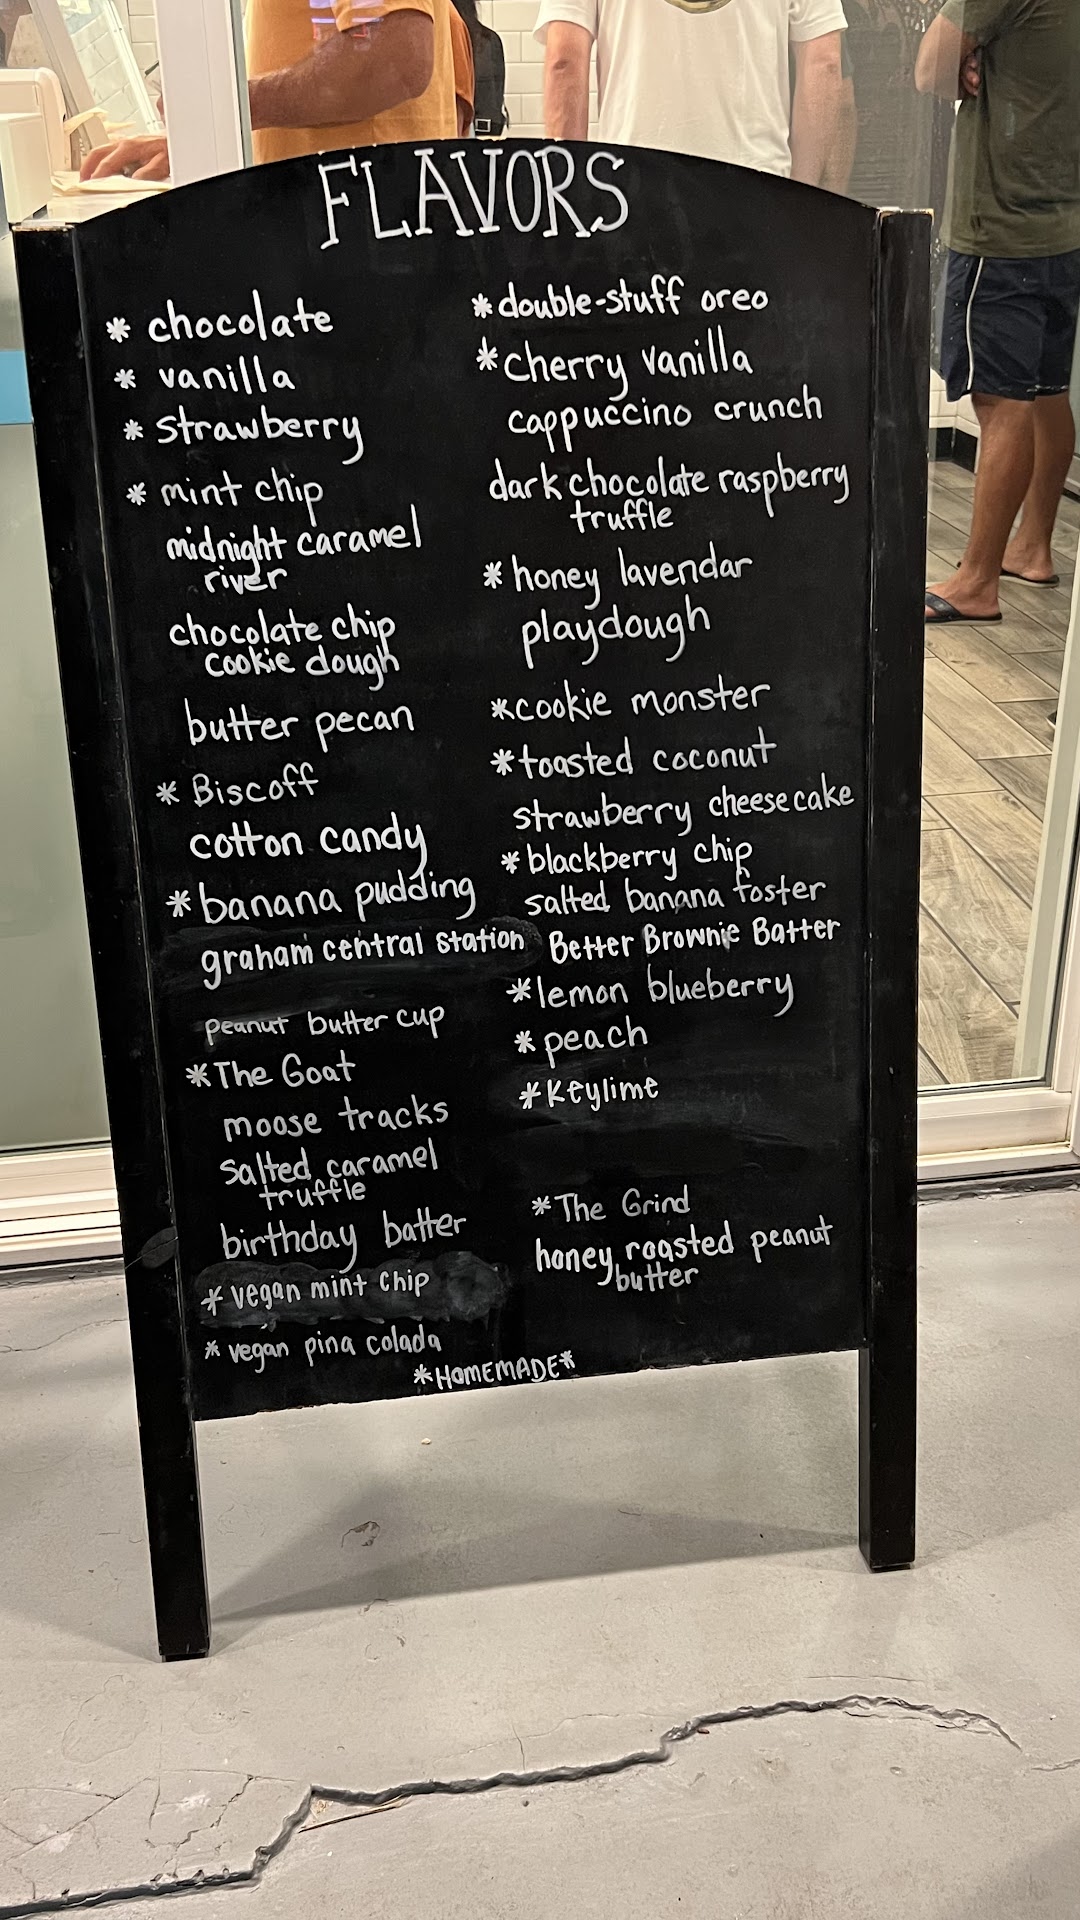 FLAVORS
* chocolate
* vanilla
* strawberry
* mint chip
midnight caramel
river
chocolate chip
cookie dough
butter pecan
* Biscoff
cotton candy
* banana pudding
graham central station
peanut butter cup
* The Goat
moose tracks
salted caramel
truffle
birthday batter
* vegan mint chip
* vegan pina colada
* double-stuff oreo
* cherry vanilla
cappuccino crunch
dark chocolate raspberry
truffle
* honey lavendar
playdough
* cookie monster
* toasted coconut
strawberry cheesecake
* blackberry chip
salted banana foster
Better Brownie Batter
* lemon blueberry
* peach
* Keylime
* The Grind
honey roasted peanut
butter
*HOMEMADE*